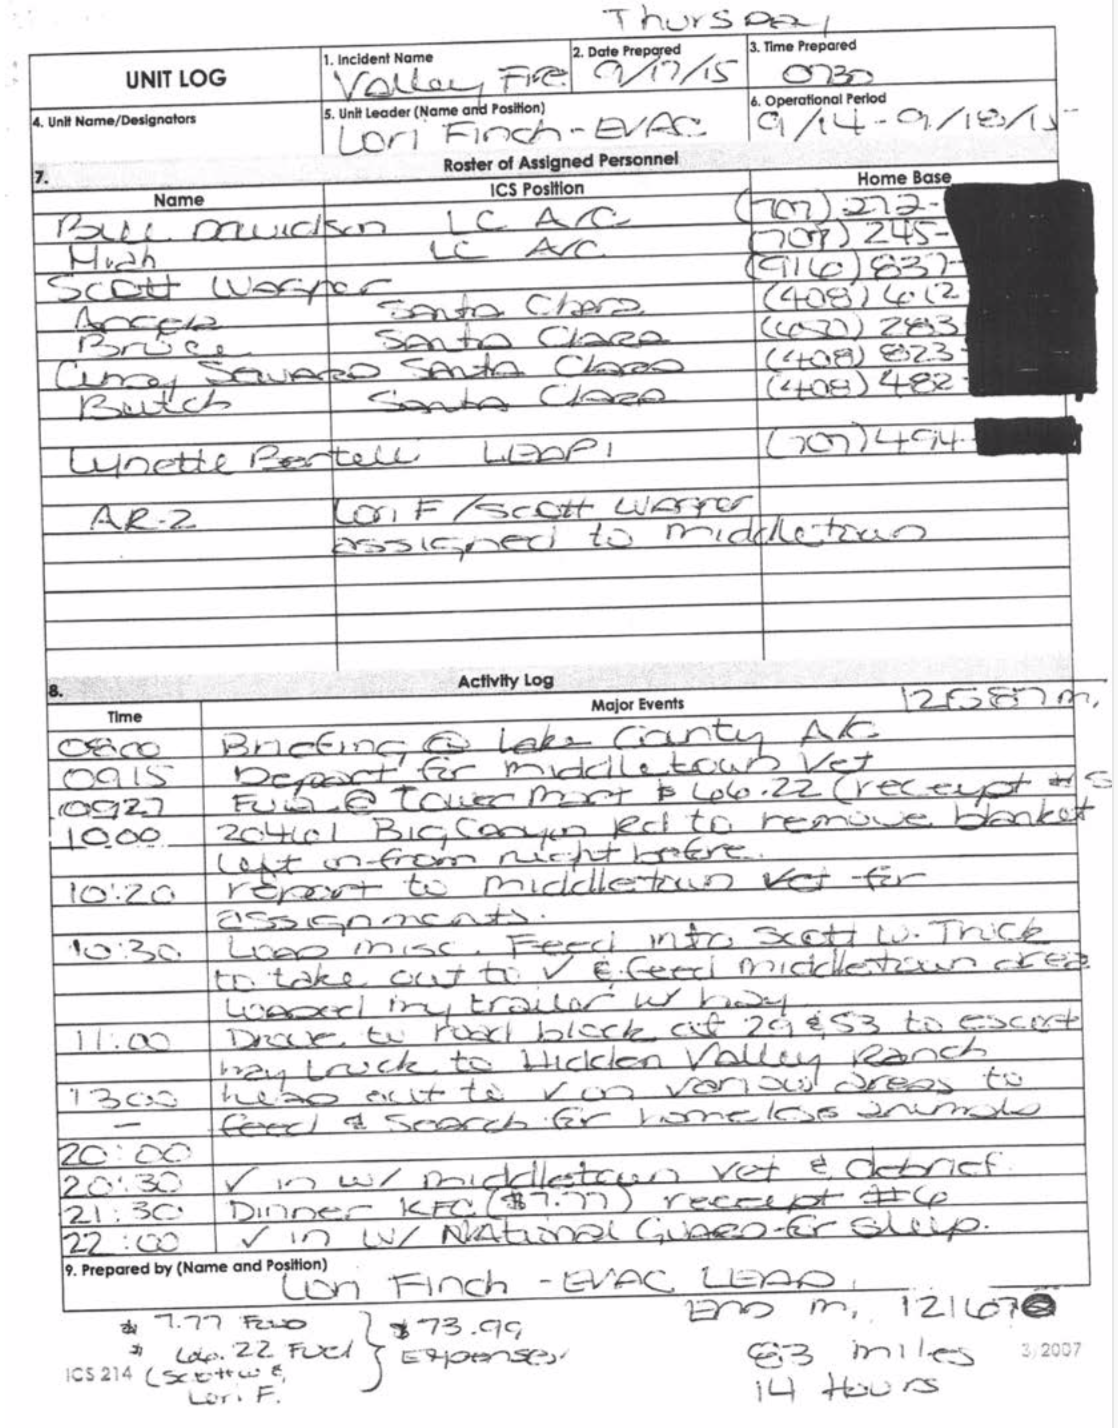 Thursday
UNIT LOG
1. Incident Name
Valley Fire
2. Date Prepared
9/17/15
3. Time Prepared
0730
4. Unit Name/Designators
5. Unit Leader (Name and Position)
Lori Finch - EVAC
6. Operational Period
9/14 - 9/18/15
7. Roster of Assigned Personnel
Name ICS Position Home Base
Bill Davidson LC A/C (707) 272-
Hugh LC A/C (707) 245-
Scott Warper (916) 837-
Angela Santa Clara (408) 612
Bruce Santa Clara 283
Cindy Santa Clara (408) 823-
Butch Santa Clara (408) 482-
Lynette LEAP1 (707) 494-
AR-2 Lori F / Scott Warper
assigned to middletown
8. Activity Log
Time Major Events 12587 m,
0800 Briefing @ Lake County A/C
0915 Depart for middletown Vet
0927 Fuel @ Tower Mart $66.22 (receipt #5
1000 20461 Big Canyon Rd to remove blanket
left on from night before.
10:20 report to middletown Vet for
assignments.
10:30 Load misc. Feed into Scott W. Truck
to take out to ✓ & feed middletown area
Loaded my trailer w/ hay
11:00 Drove to road block at 29 & 53 to escort
hay truck to Hidden Valley Ranch
1300 head out to ✓ on various areas to
– feed & search for homeless animals
20:00
20:30 ✓ in w/ middletown Vet & debrief.
21:30 Dinner KFC ($7.77) receipt #6
22:00 ✓ in w/ National Guard for sleep.
9. Prepared by (Name and Position)
Lori Finch - EVAC LEAD
End m, 12167
$ 7.77 Food
$ 66.22 Fuel
$73.99
Expenses
83 miles
3/2007
ICS 214 (Scott W &
Lori F.
14 Hours